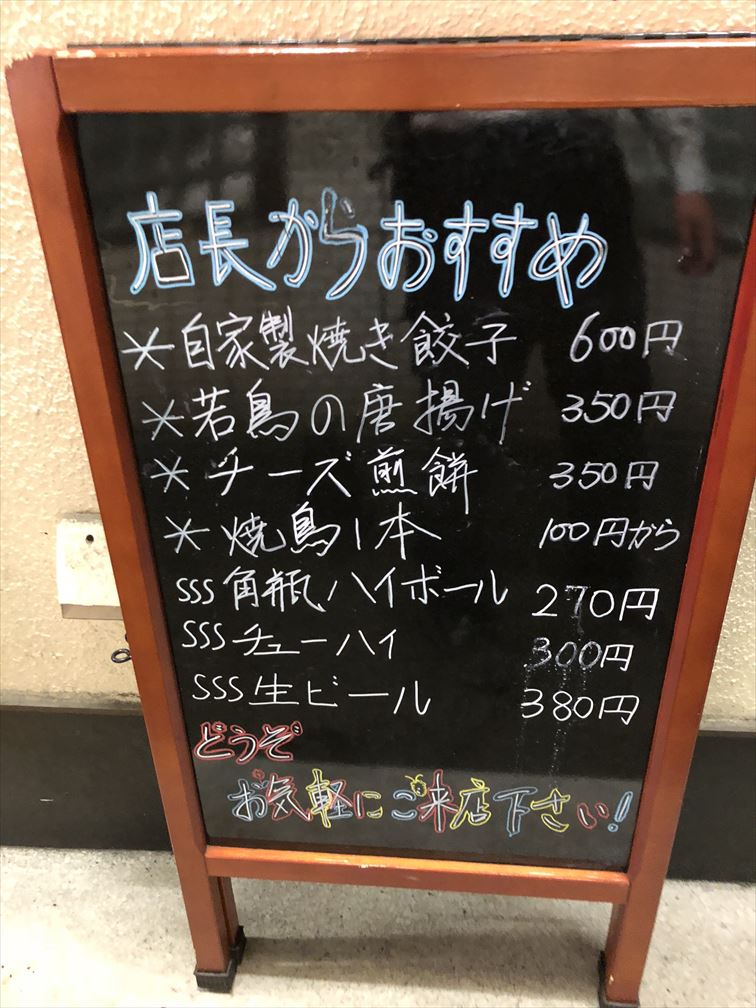 店長からおすすめ
*自家製焼き餃子 600円
*若鳥の唐揚げ 350円
*チーズ煎餅 350円
*焼鳥1本 100円から
SSS角瓶ハイボール 270円
SSSチューハイ 300円
SSS生ビール 380円
どうぞ
お気軽にご来店下さい!